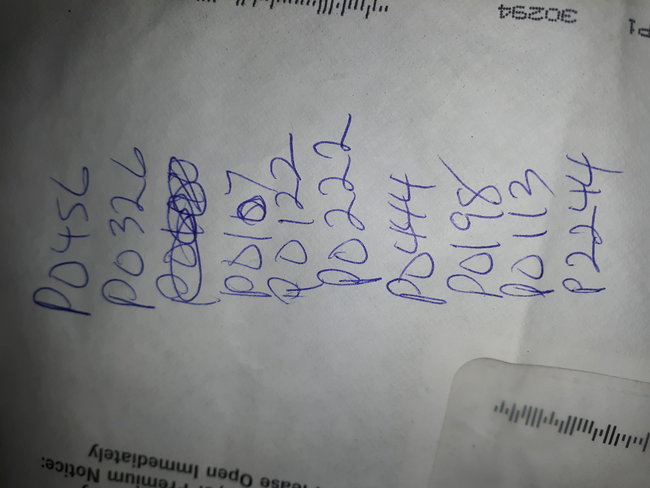 P0456
P0326
P0107
P0122
P0222
P0444
P0198
P0113
P2244
30294
P1
Premium Notice:
ease Open Immediately